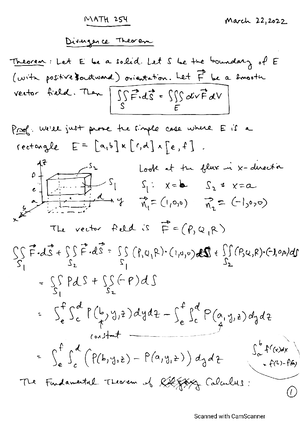 MATH 254 March 22, 2022
Divergence Theorem
Theorem: Let E be a solid. Let S be the boundary of E
(with positive/outward) orientation. Let F⃗ be a smooth
vector field. Then ∬_S F⃗·dS⃗ = ∭_E div F⃗ dV
Proof. We'll just prove the simple case where E is a
rectangle E = [a,b]×[c,d]×[e,f].
Look at the flux in x-direction
S₁: x=b S₂: x=a
n⃗₁=(1,0,0) n⃗₂=(-1,0,0)
z S₂ S₁ f e c d y a b x
The vector field is F⃗ = (P,Q,R)
∬_S₁ F⃗·dS⃗ + ∬_S₂ F⃗·dS⃗ = ∬_S₁ (P,Q,R)·(1,0,0)dS + ∬_S₂ (P,Q,R)·(-1,0,0)dS
= ∬_S₁ P dS + ∬_S₂ (-P) dS
= ∫_e^f ∫_c^d P(b,y,z) dy dz - ∫_e^f ∫_c^d P(a,y,z) dy dz
constant
= ∫_e^f ∫_c^d (P(b,y,z) - P(a,y,z)) dy dz
∫_a^b f'(x)dx
= f(b)-f(a)
The Fundamental Theorem of Calculus:
1
Scanned with CamScanner